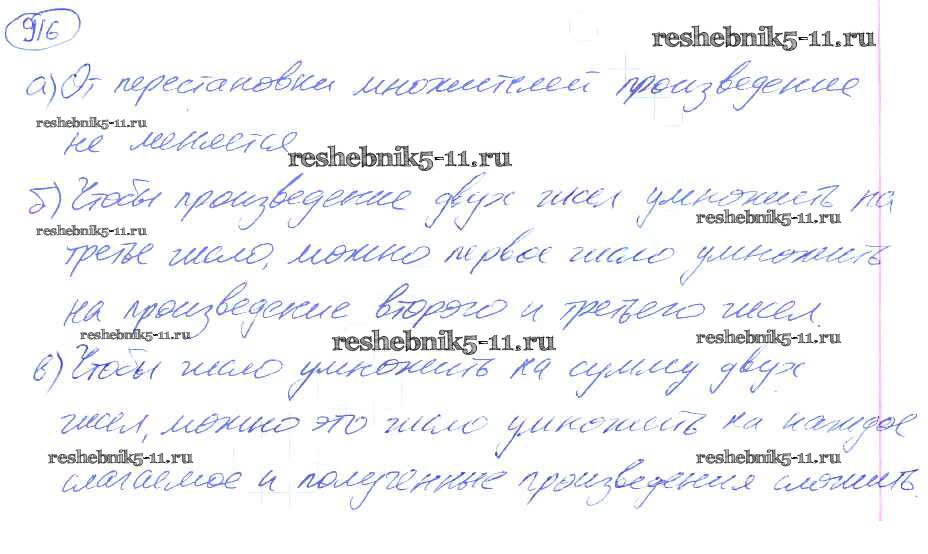 916
reshebnik5-11.ru
а) От перестановки множителей произведение
reshebnik5-11.ru
не меняется
reshebnik5-11.ru
б) Чтобы произведение двух чисел умножить на
reshebnik5-11.ru
reshebnik5-11.ru
третье число, можно первое число умножить
на произведение второго и третьего чисел.
reshebnik5-11.ru
reshebnik5-11.ru
reshebnik5-11.ru
в) Чтобы число умножить на сумму двух
чисел, можно это число умножить на каждое
reshebnik5-11.ru
reshebnik5-11.ru
слагаемое и полученные произведения сложить.